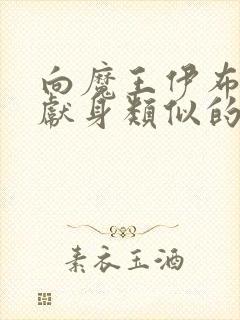 向魔王伊布
献身類似的
素衣玉酒